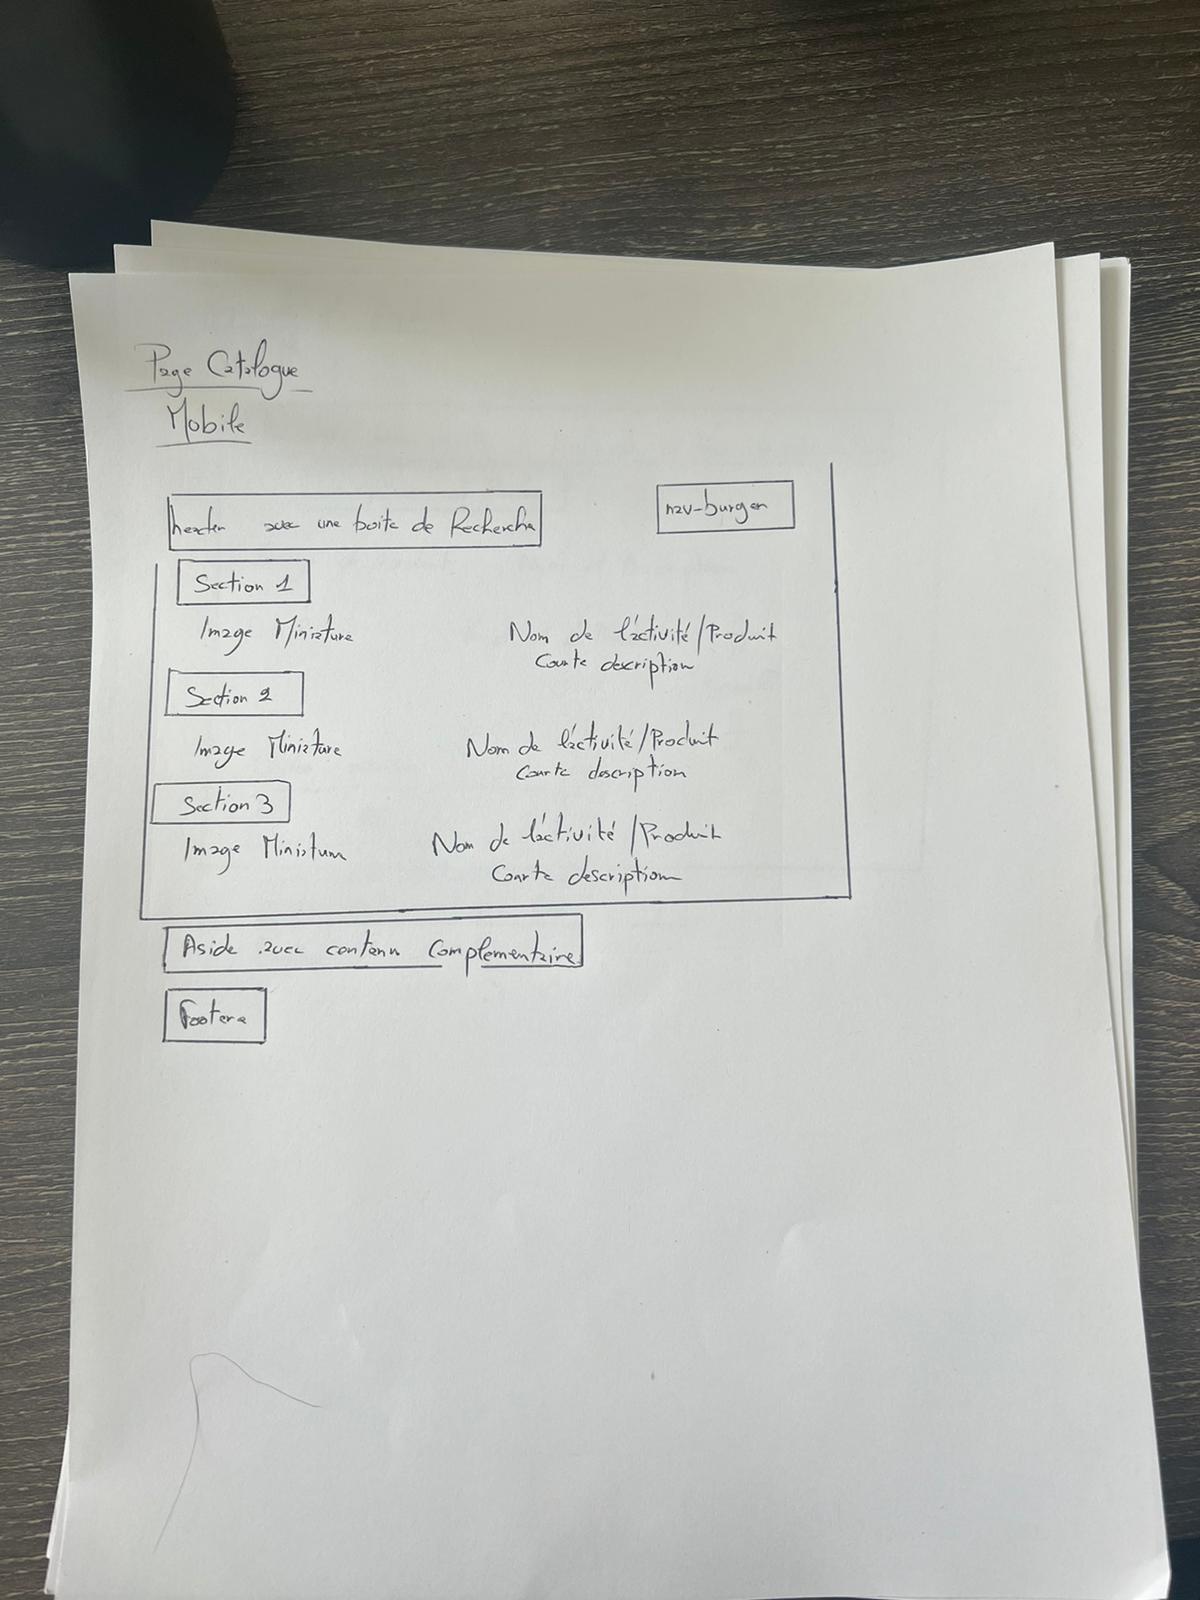 Page Catalogue
Mobile
header avec une boite de Recherche
nav-burger
Section 1
Image Miniature
Nom de l'activité/Produit
Courte description
Section 2
Image Miniature
Nom de l'activité/Produit
Courte description
Section 3
Image Miniature
Nom de l'activité/Produit
Courte description
Aside avec contenu Complementaire
Footer